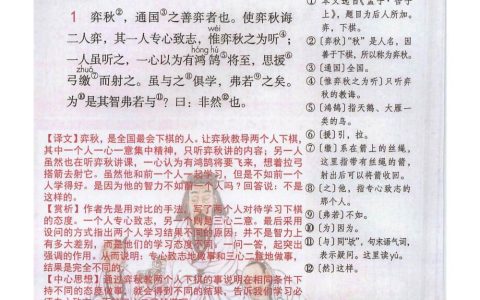 1 弈秋②，通国③之善弈者也。使弈秋诲
wéi
二人弈，其一人专心致志，惟弈秋之为听④；
hóng hú
一人虽听之，一心以为有鸿鹄⑤将至，思援⑥
zhuó
弓缴⑦而射之。虽与之⑧俱学，弗若⑨之矣。
为⑩是其智弗若与⑪？曰：非然⑫也。
【译文】弈秋，是国最会下棋的人。让弈秋教导两个人下棋，
其中一个人一心一意集中精神，只听弈秋讲的内容；另一人
虽然也在听弈秋讲课，一心认为有鸿鹄将要飞来，想着拉弓
搭箭去射它。虽然他和前一个人一起学习，但是不如前一个
人学得好。是因为他的智力不如前一个人吗？回答说：不是
这样的。
【赏析】作者先是用对比的手法，写了两个人对待学习下棋
的态度。一个人专心致志，另一个则是三心二意。最后采用
设问的方式指出两个人学习结果不同的原因；并不是智力上
有多大差别，而是他们的学习态度不同，一问一答，起突出
强调的作用。从而说明：专心致志地做事和三心二意地做事，
结果是完全不同的。
【中心思想】通过弈秋教两个人下棋的事说明在相同条件下
持不同的态度做事，就会得到不同的结果，告诉我们学习必
上》，题目为后人所加。
弈，下棋。
② 〔弈秋〕“秋”是人名，因
善于下棋，所以称为弈秋。
③ 〔通国〕全国。
④ 〔惟弈秋之为听〕只听弈
秋的教诲。
⑤ 〔鸿鹄〕指天鹅、大雁一
类的鸟。
⑥ 〔援〕引，拉。
⑦ 〔缴〕系在箭上的丝绳，
这里指带有丝绳的箭，
射出后可以将箭收回。
⑧ 〔之〕他，指专心致志的
那个人。
⑨ 〔弗若〕不如。
⑩ 〔为〕因为。
⑪ 〔与〕同“欤”，句末语气词，
表示疑问。这里读yú。
⑫ 〔然〕这样。